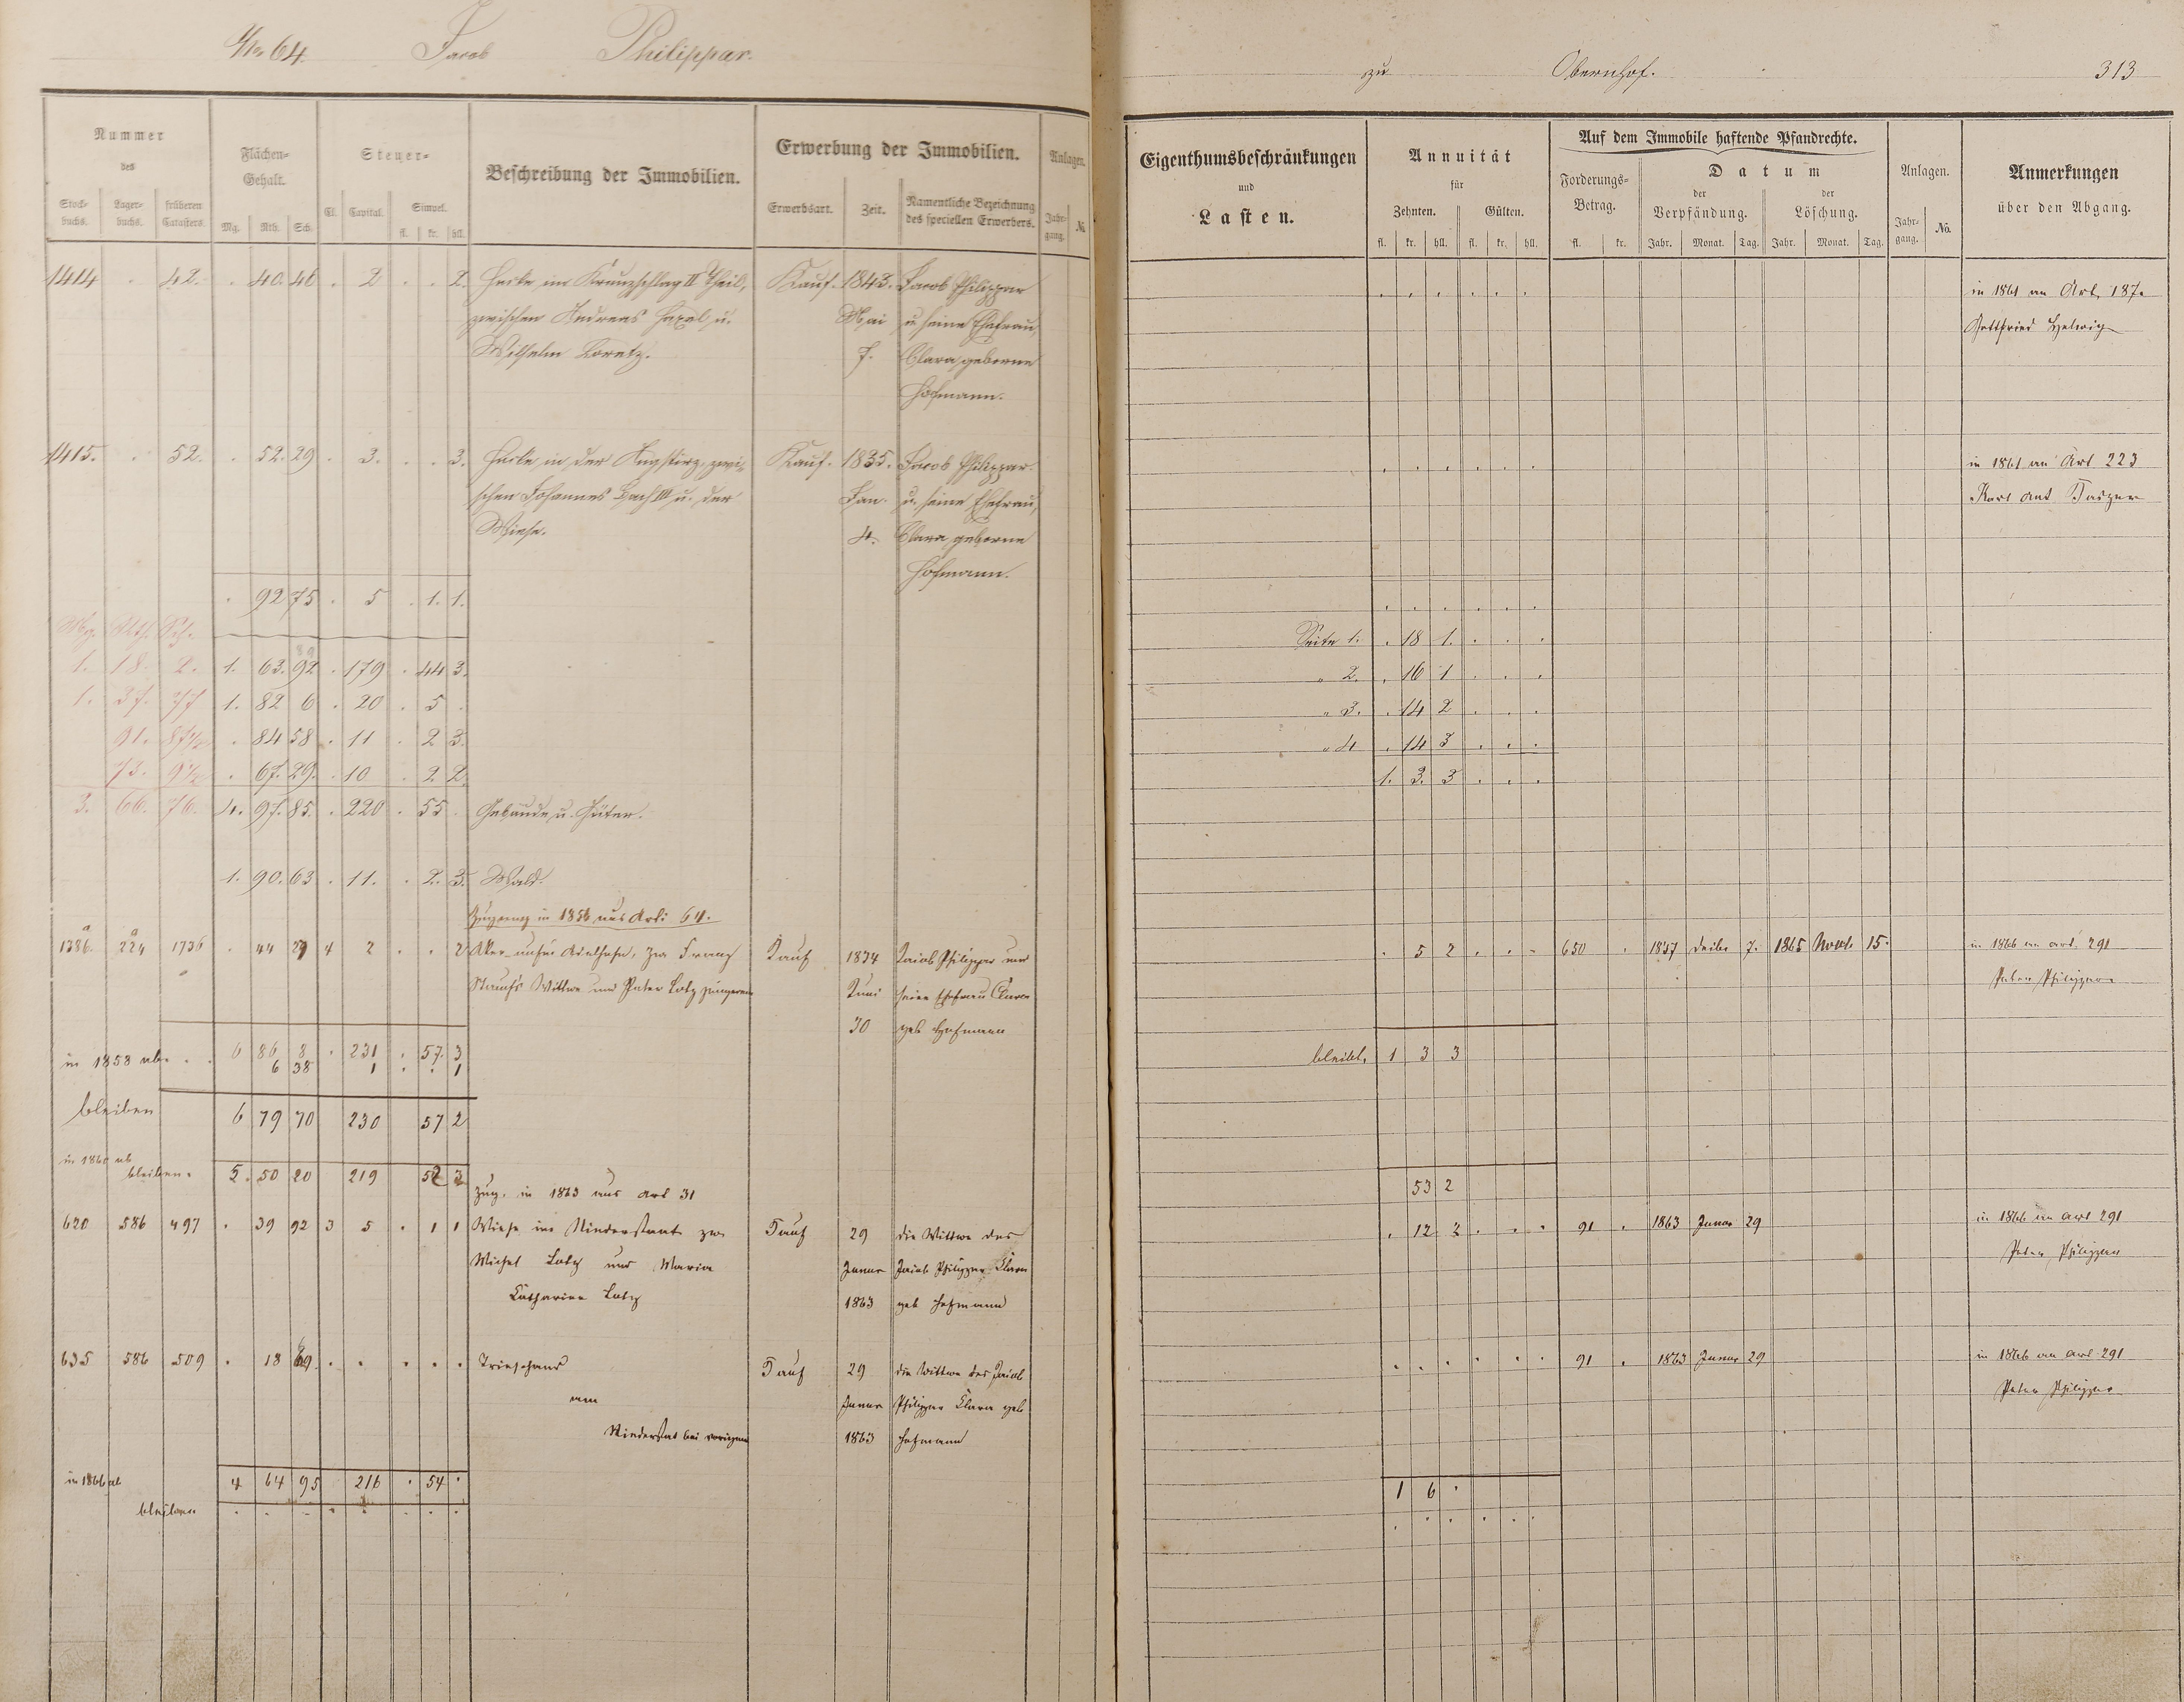 No 64. Jacob Philippar.
zu Obernhof. 313
Nummer
des
Stock-
buchs.
Lager-
buchs.
früheren
Catasters.
Flächen-
Gehalt.
Mg. Rth. Sch.
Steuer-
Cl. Capital. Simpel.
fl. kr. hll.
Beschreibung der Immobilien.
Erwerbung der Immobilien.
Erwerbsart. Zeit. Namentliche Bezeichnung
des speciellen Erwerbers.
Anlagen.
Jahr-
gang. No.
Eigenthumsbeschränkungen
und
Lasten.
Annuität
für
Zehnten. Gülten.
fl. kr. hll. fl. kr. hll.
Auf dem Immobile haftende Pfandrechte.
Forderungs-
Betrag.
fl. kr.
Datum
der
Verpfändung.
der
Löschung.
Jahr. Monat. Tag. Jahr. Monat. Tag.
Anlagen.
Jahr-
gang. No.
Anmerkungen
über den Abgang.
1414 . 42. . 40. 46 . 2 . . 2. Hecke im Kreuzschlag II Theil, Kauf. 1843. Jacob Philippar
zwischen Andreas u. Mai u. seine Ehefrau,
Wilhelm Loretz. 7. Clara, geborne
Hofmann.
in 1861 an Art. 187.
Gottfried Helwig
1415. . 52. . 52. 29 . 3. . . 3. Hecke in der zwi- Kauf. 1835. Jacob Philippar
schen Johannes Bach III u. der Jan. u. seine Ehefrau,
Wiese. 4. Clara, geborne
Hofmann.
in 1861 an Art 223
Karl Ant
. 92 75 . 5 . 1. 1.
Mg. Rth. Sch.
1. 18. 2. 1. 63. 92 . 179 . 44 3. Seite 1. . 18 1. . . .
1. 37. 77 1. 82 6 . 20 . 5 . " 2. . 16 1 . . .
91. 87½ . 84 58 . 11 . 2 3. " 3. . 14 2 . . .
73. 9½ . 67. 29. . 10 . 2. 2. " 4 . 14 3 . . .
1. 3. 3 . . .
3. 66. 76. 4. 97. 85. . 220 . 55 . Gebäude u. Güter.
1. 90. 63 . 11. . 2. 3. Wald.
Zugang in 1856 aus Artic 64.
a a
1386. 224 1736 . 44 29 4 2 . . 2 Acker zw Franz Kauf 1834 Jacob Philippar und
Wittwe und Peter Lotz jüngeren Juni seine Ehefrau Clara
30 geb Hofmann
. 5 2 . . . 650 . 1857 Decbr 7. 1865 Novbr 15. in 1866 an art 291
Peter Philippar
6 86 8 . 231 . 57. 3
in 1858 ab. . . 6 38 1 . . 1
bleibt, 1 3 3
bleiben 6 79 70 230 57 2
in 1861 ab
bleiben. 5. 50 20 219 52 3
53 2
Zug. in 1863 aus art 31
620 586 497 . 39 92 3 5 . 1 1 Wiese im zw. Kauf 29 die Wittwe des
Michel Lotz und Maria Januar Jacob Philippar Klara
Katharina Lotz 1863 geb Hofmann
. 12 2 . . . 91 . 1863 Januar 29 in 1866 an art 291
Peter Philippar
635 586 509 . 18 69. . . . . . Trieschand Kauf 29 die Wittwe des Jacob
am Januar Philippar Klara geb
bei vorigem 1863 Hofmann
. . . . . . 91 . 1863 Januar 29 in 1866 an art 291
Peter Philippar
in 1866 ab 4 64 95 216 . 54 .
1 6 .
bleiben . . . . . . . .